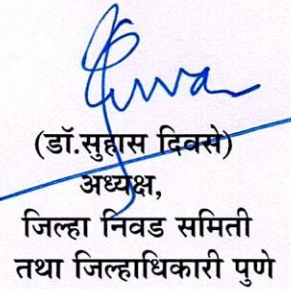 (डॉ.सुहास दिवसे)
अध्यक्ष,
जिल्हा निवड समिती
तथा जिल्हाधिकारी पुणे